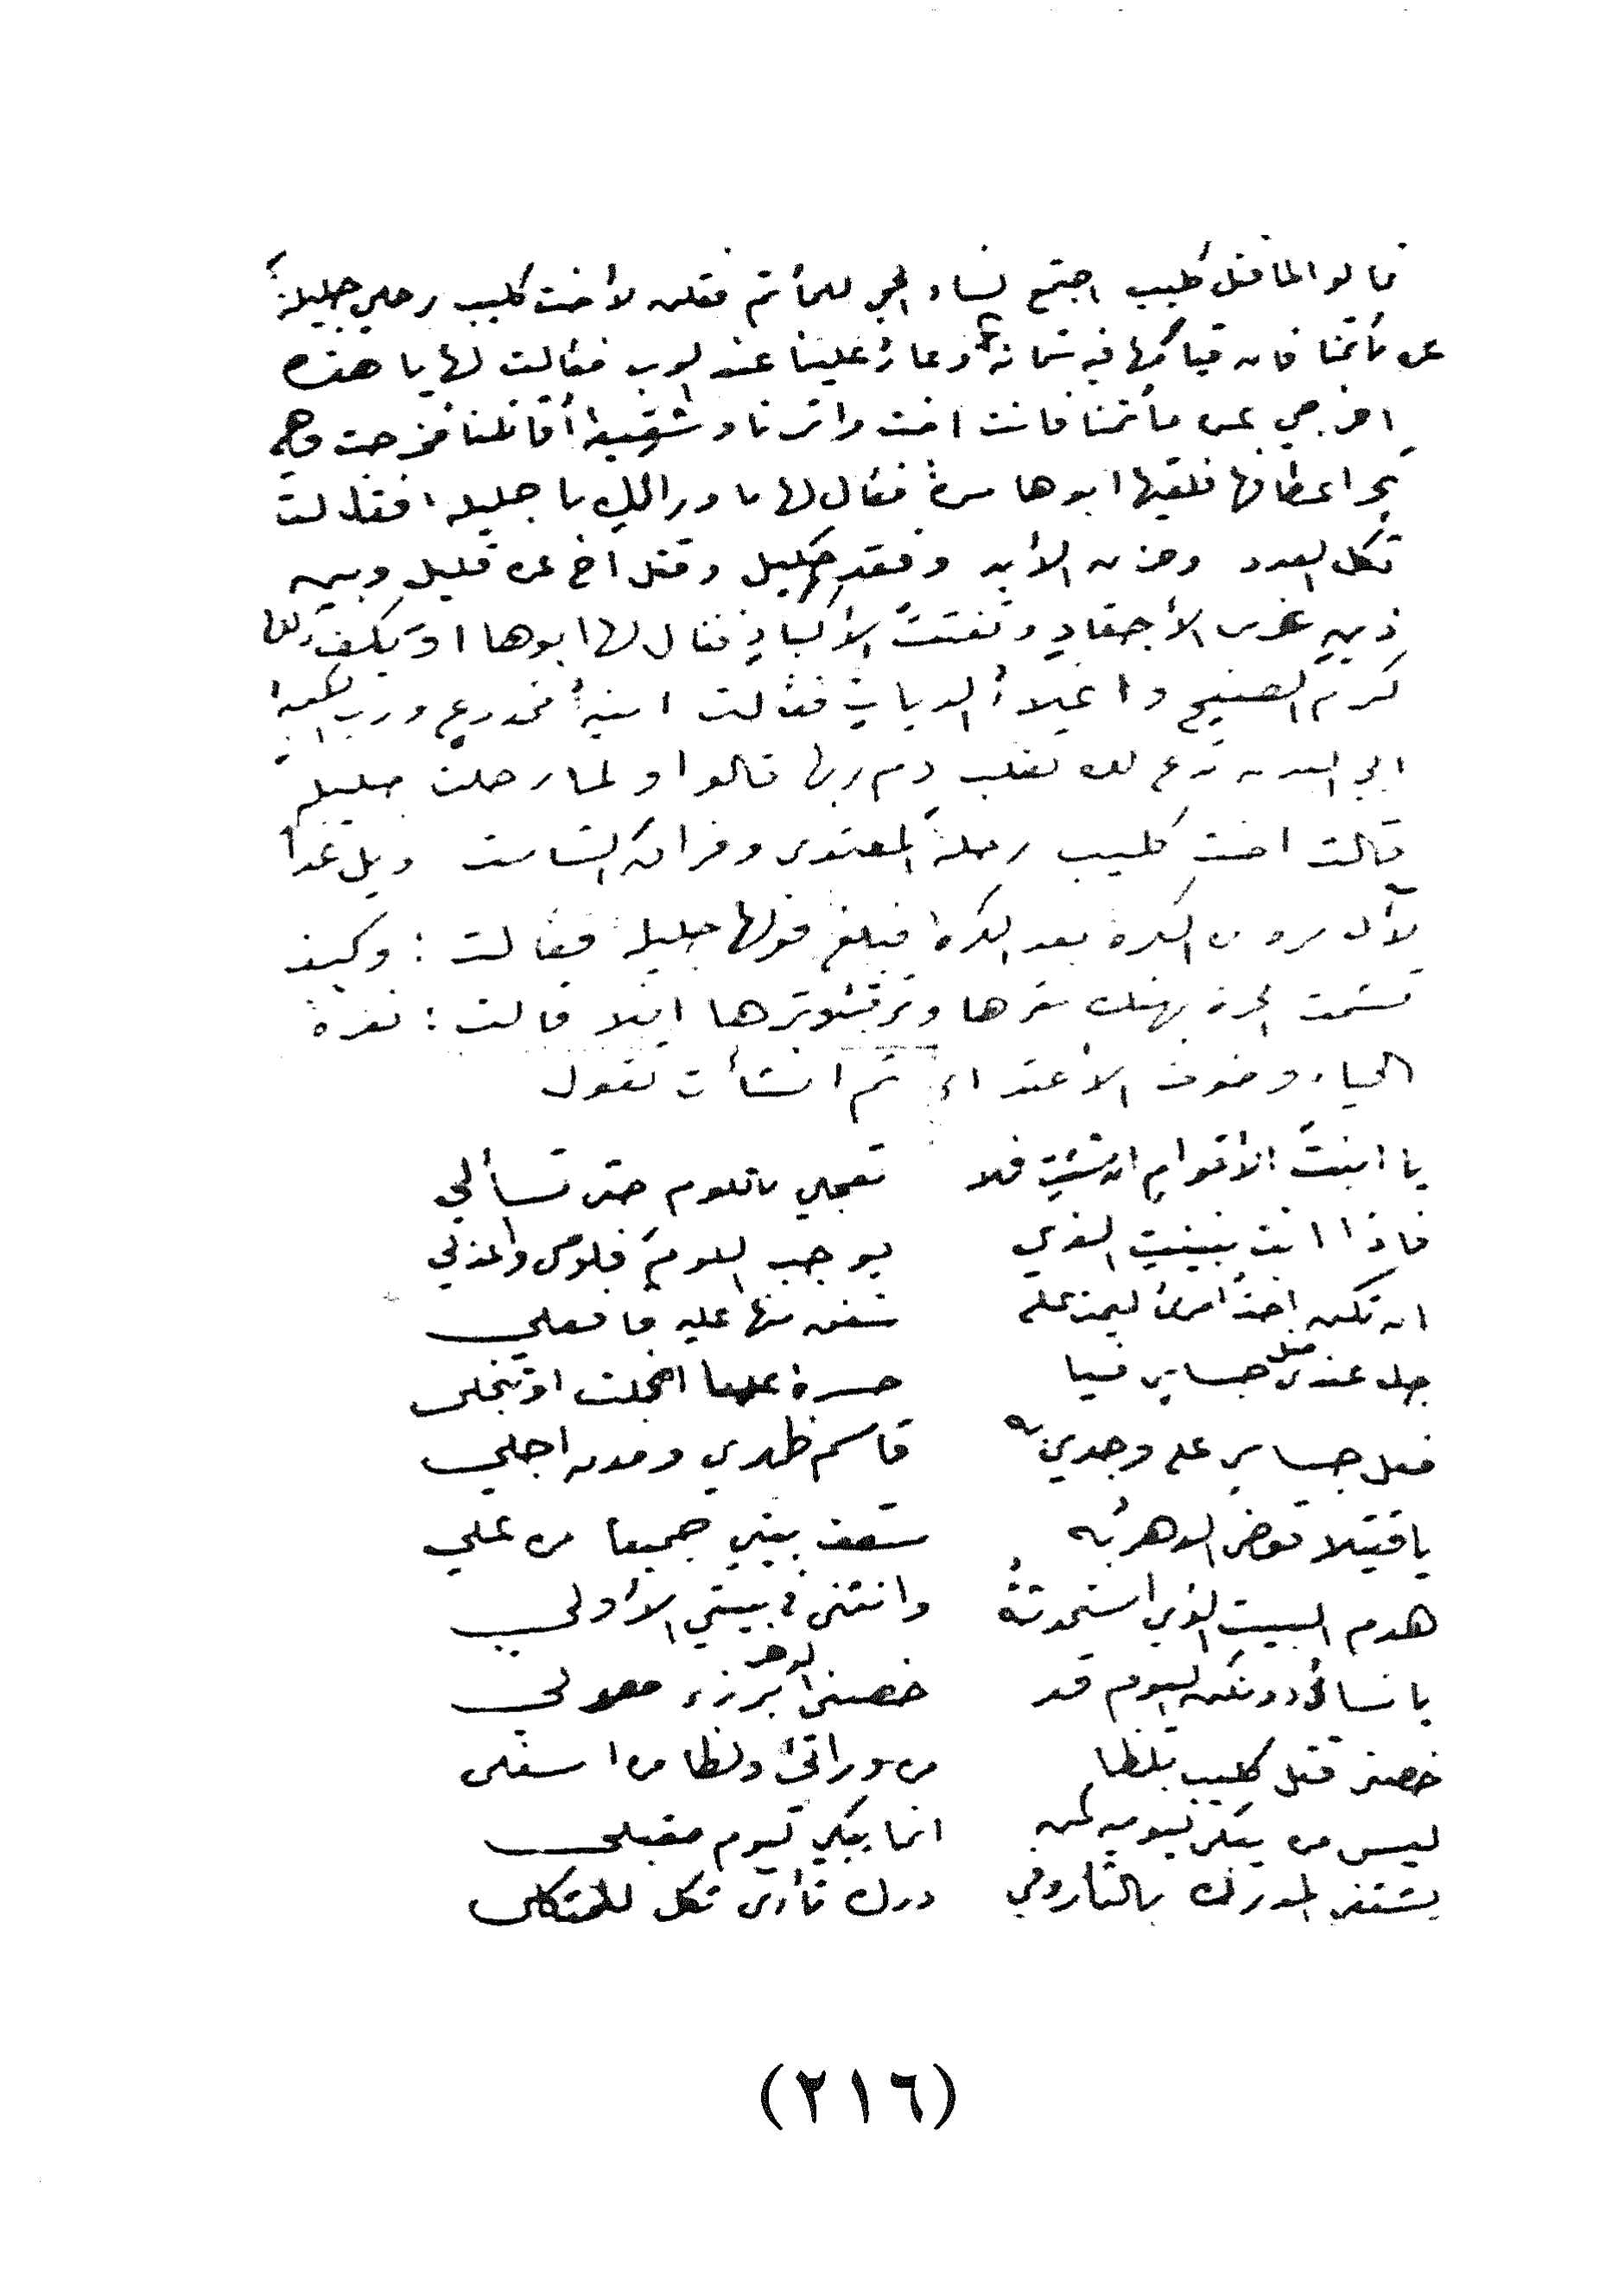 قالوا لما قتل كليب اجتمع نساء الحي للمأتم فقلن لأخت كليب رحلي جليلةَ
عن مأتمنا فان قيامها فيه شماتةٌ وعارٌ علينا عند العرب فقالت لها يا هذه
اخرجي عن مأتمنا فانت اخت واترنا وشقيقة قاتلنا فخرجت وهي
تجر اعطافها فلقيها ابوها مرة فقال لها ما ورائكِ يا جليلة فقالت
ثكل العدد وحزن الأبد وفقد حليل وقتل أخ عن قليل وبين
ذين غرس الأحقاد وتفتت الأكباد فقال لها ابوها او يكف ذلك
كرم الصفح واغلاءُ الديات فقالت امنيةُ مخدوعٍ ورب الكعبة
ابي البدن تدع لك تغلب دم ربها قالوا ولما رحلت جليلة
قالت اخت كليب رحلة المعتدى وفراق الشامت ويل غداً
لآل مرة من الكرة بعد الكرة فبلغ قولها جليلة فقالت : وكيف
تشمت الحرة بهتك سترها وترقب وترها افلا قالت : نفرة
الحياء وخوف الأعتداء ثم انشأت تقول
يا ابنت الأقوام ان شئتِ فلا تعجلي باللوم حتى تسألي
فاذا انت تبينت الذي يوجب اللوم فلومى واعذلي
ان تكن اخت امرئ ليمت على شفق منها عليه فافعلي
جل عندى فعل جساس فيا حسرة عما انجلت او تنجلى
فعل جساس على وجدي به قاسم ظهري ومدن اجلي
يا قتيلا قوض الدهر به سقف بيتي جميعا من علي
هدم البيت الذي استحدثته وانثنى في بيتي الأولي
يا نسائى دونكن اليوم قد خصنى الدهر برزء معضلي
خصنى قتل كليب بلظا من ورائى ولظا من اسفلى
ليس من يبكى ليومه كمن انما يبكي ليوم مقبلي
يشتفى المدرك بالثار وفي درك ثأرى ثكل للمثكلى
(٢١٦)